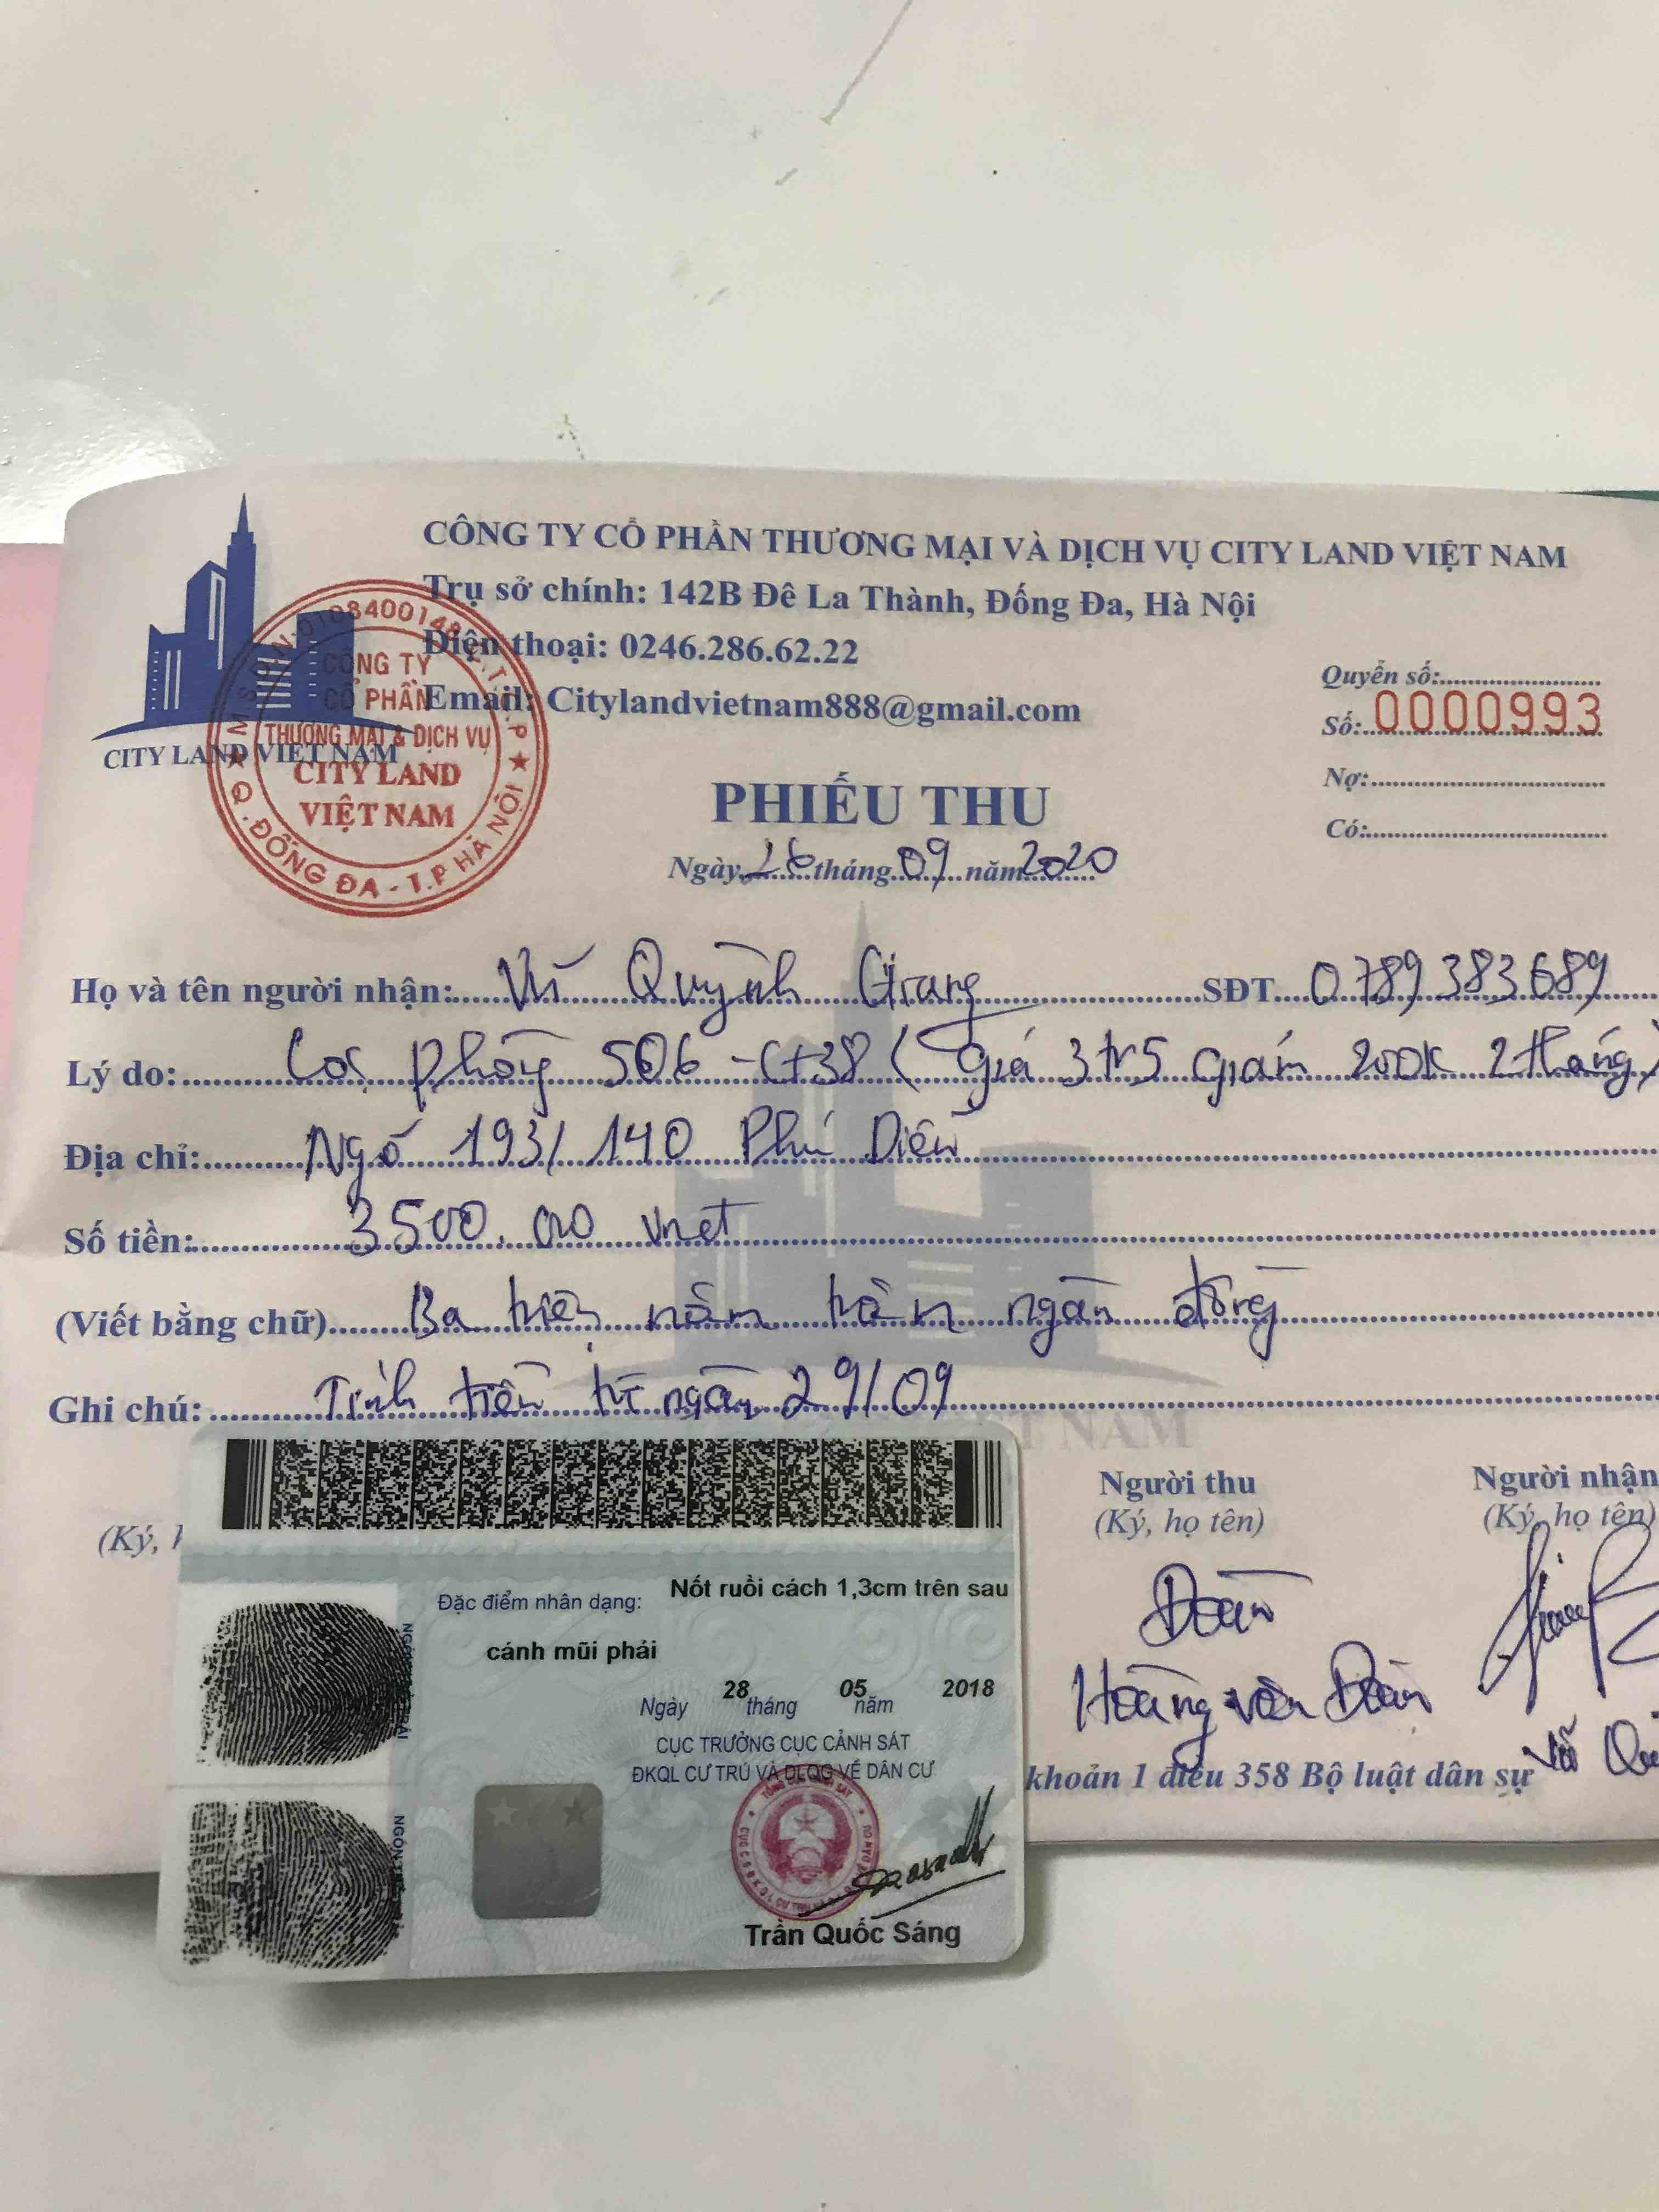 CÔNG TY CỔ PHẦN THƯƠNG MẠI VÀ DỊCH VỤ CITY LAND VIỆT NAM
Trụ sở chính: 142B Đê La Thành, Đống Đa, Hà Nội
Điện thoại: 0246.286.62.22
Email: Citylandvietnam888@gmail.com
CITY LAND VIET NAM
CÔNG TY
CỔ PHẦN
THƯƠNG MẠI & DỊCH VỤ
CITY LAND
VIỆT NAM
Q. ĐỐNG ĐA - T.P HÀ NỘI
Quyển số:
Số: 0000993
Nợ:
Có:
PHIẾU THU
Ngày 26 tháng 09 năm 2020
Họ và tên người nhận: Vũ Quỳnh Giang SĐT 0789383689
Lý do: Cọc phòng 506 - CT38 ( giá 3tr5 giảm 200K 2 tháng)
Địa chỉ: Ngõ 193/140 Phú Diễn
Số tiền: 3500.000 vnđ
(Viết bằng chữ) Ba triệu năm trăm ngàn đồng
Ghi chú: Tính tiền từ ngày 29/09
VIỆT NAM
Người thu
(Ký, họ tên)
Người nhận
(Ký, họ tên)
(Ký, h
Đoàn
Hoàng Văn Đoàn
Vũ Qu
khoản 1 điều 358 Bộ luật dân sự
Đặc điểm nhân dạng: Nốt ruồi cách 1,3cm trên sau
cánh mũi phải
Ngày 28 tháng 05 năm 2018
CỤC TRƯỞNG CỤC CẢNH SÁT
ĐKQL CƯ TRÚ VÀ DLQG VỀ DÂN CƯ
Trần Quốc Sáng